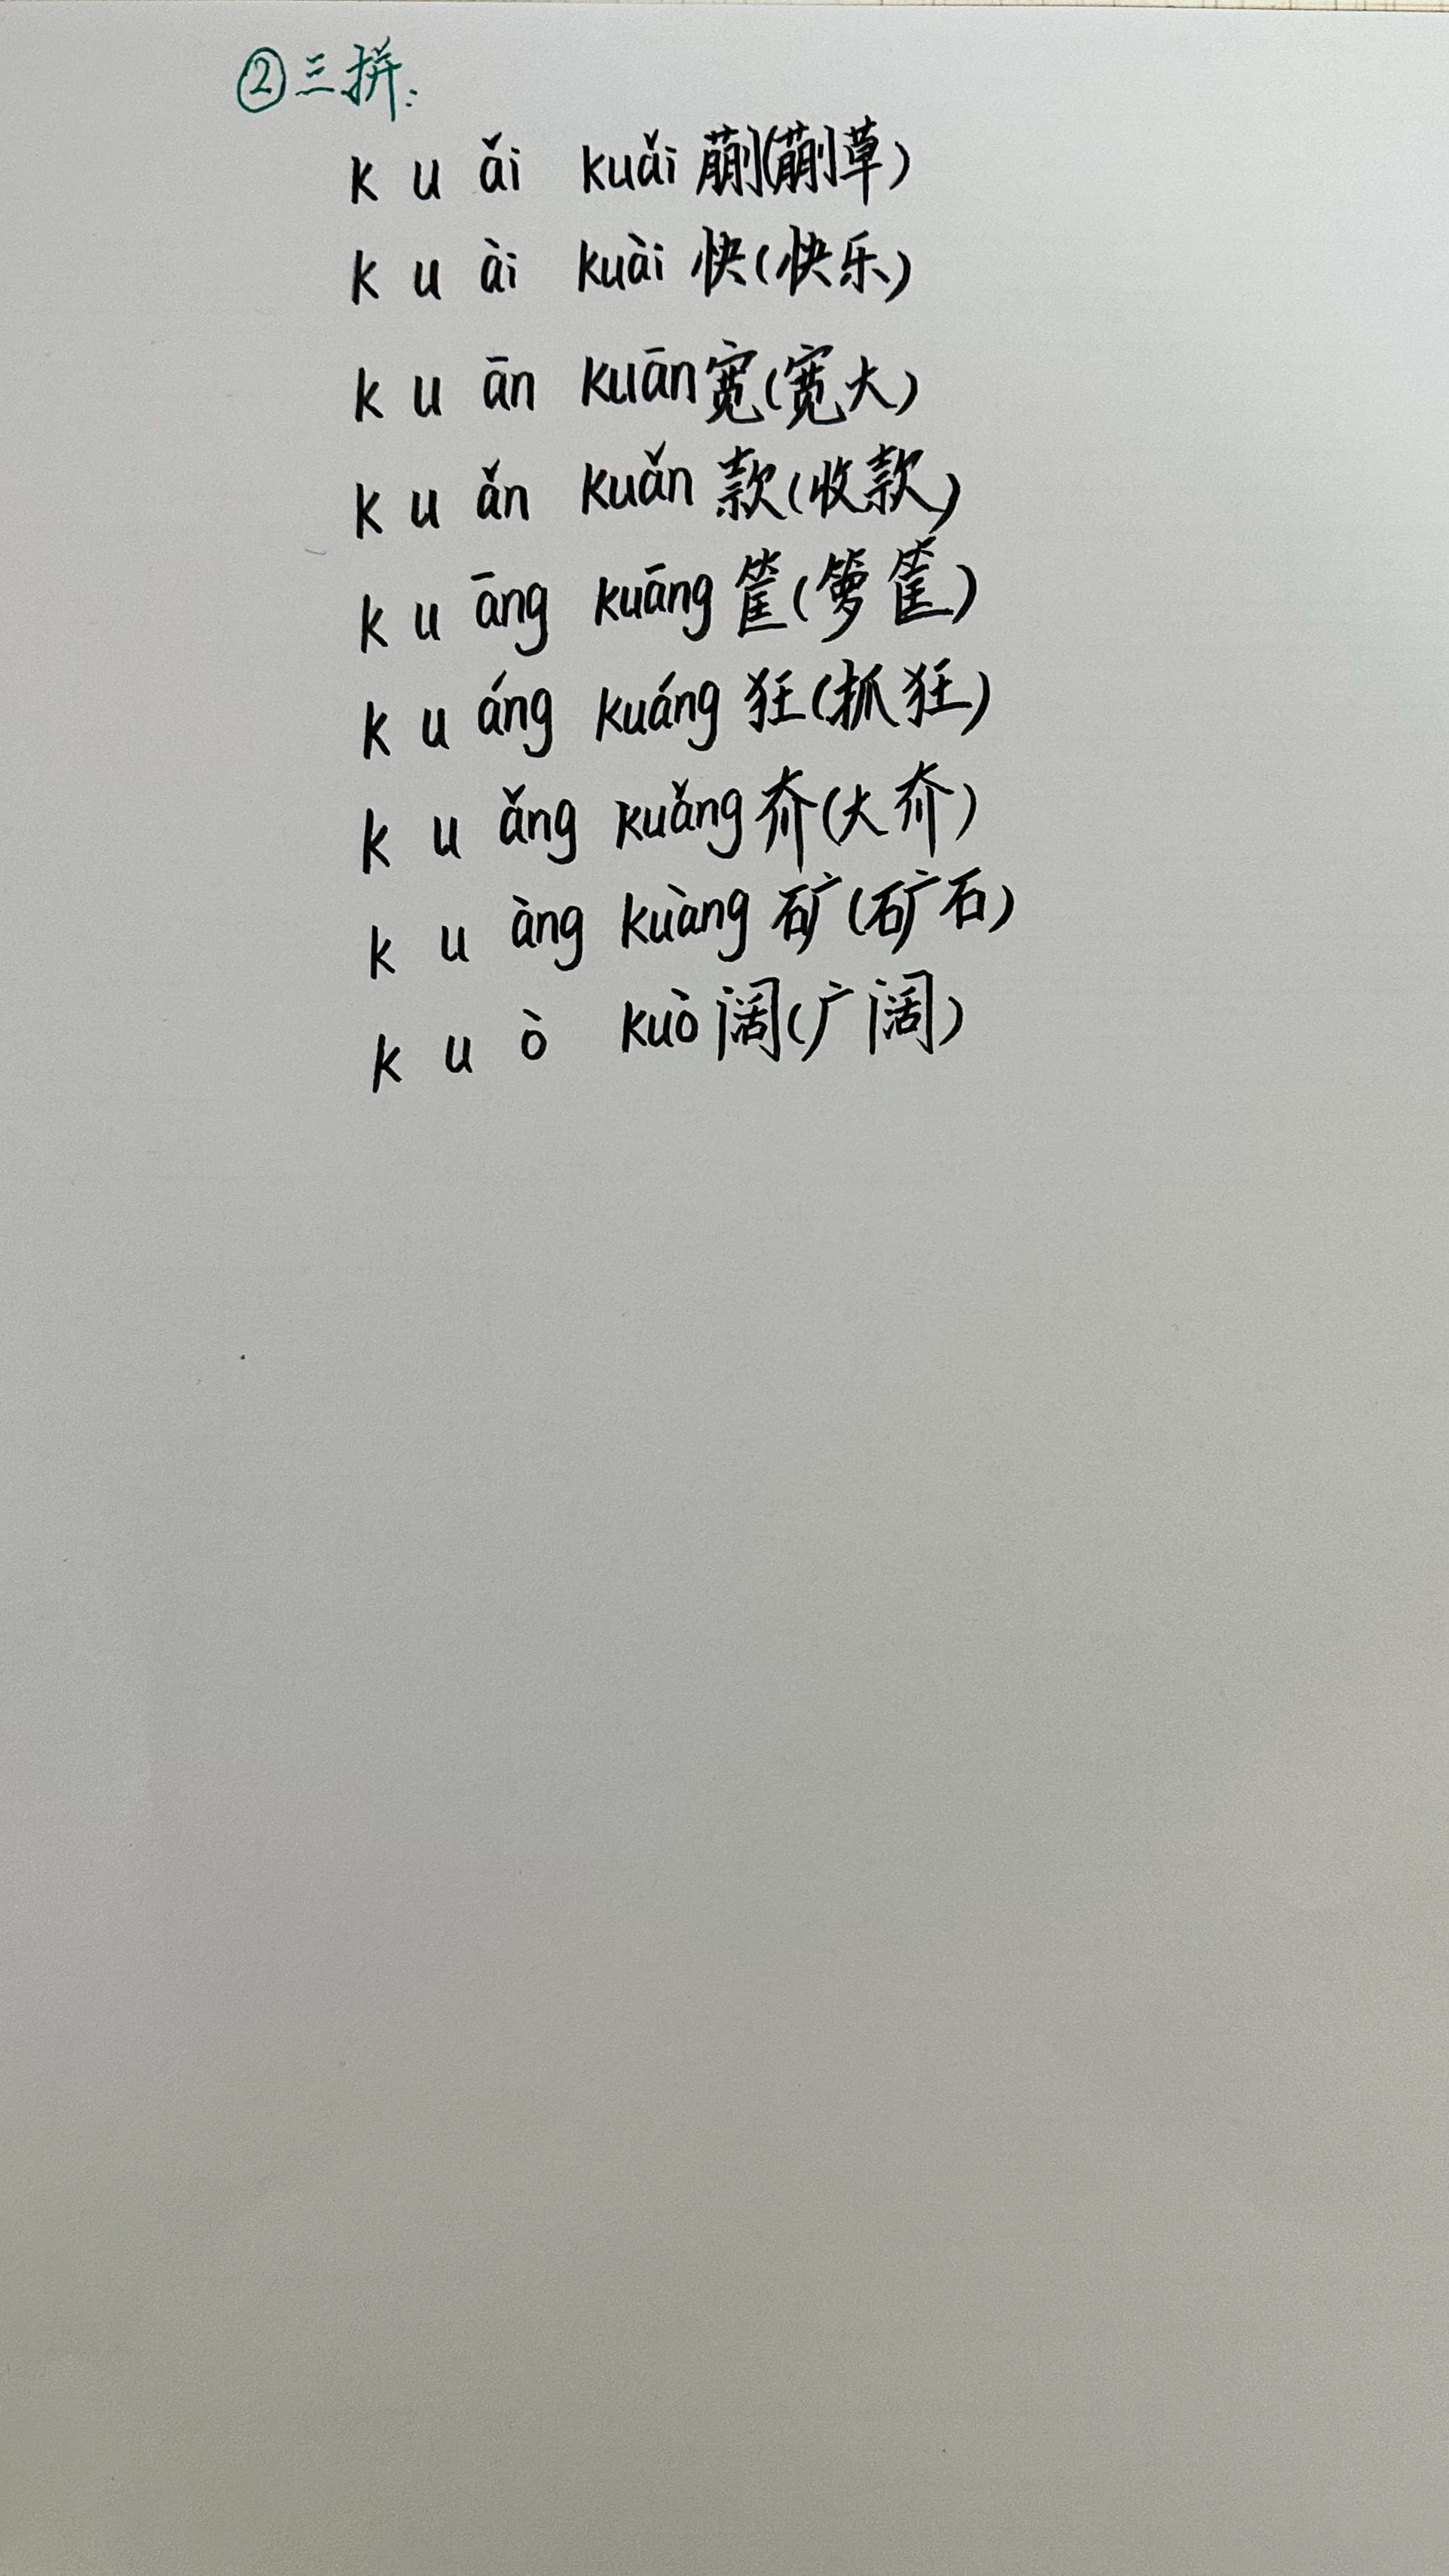 ②三拼:
k u ǎi kuǎi 蒯(蒯草)
k u ài kuài 快(快乐)
k u ān kuān 宽(宽大)
k u ǎn kuǎn 款(收款)
k u āng kuāng 筐(箩筐)
k u áng kuáng 狂(抓狂)
k u ǎng kuǎng 夼(大夼)
k u àng kuàng 矿(矿石)
k u ò kuò 阔(广阔)